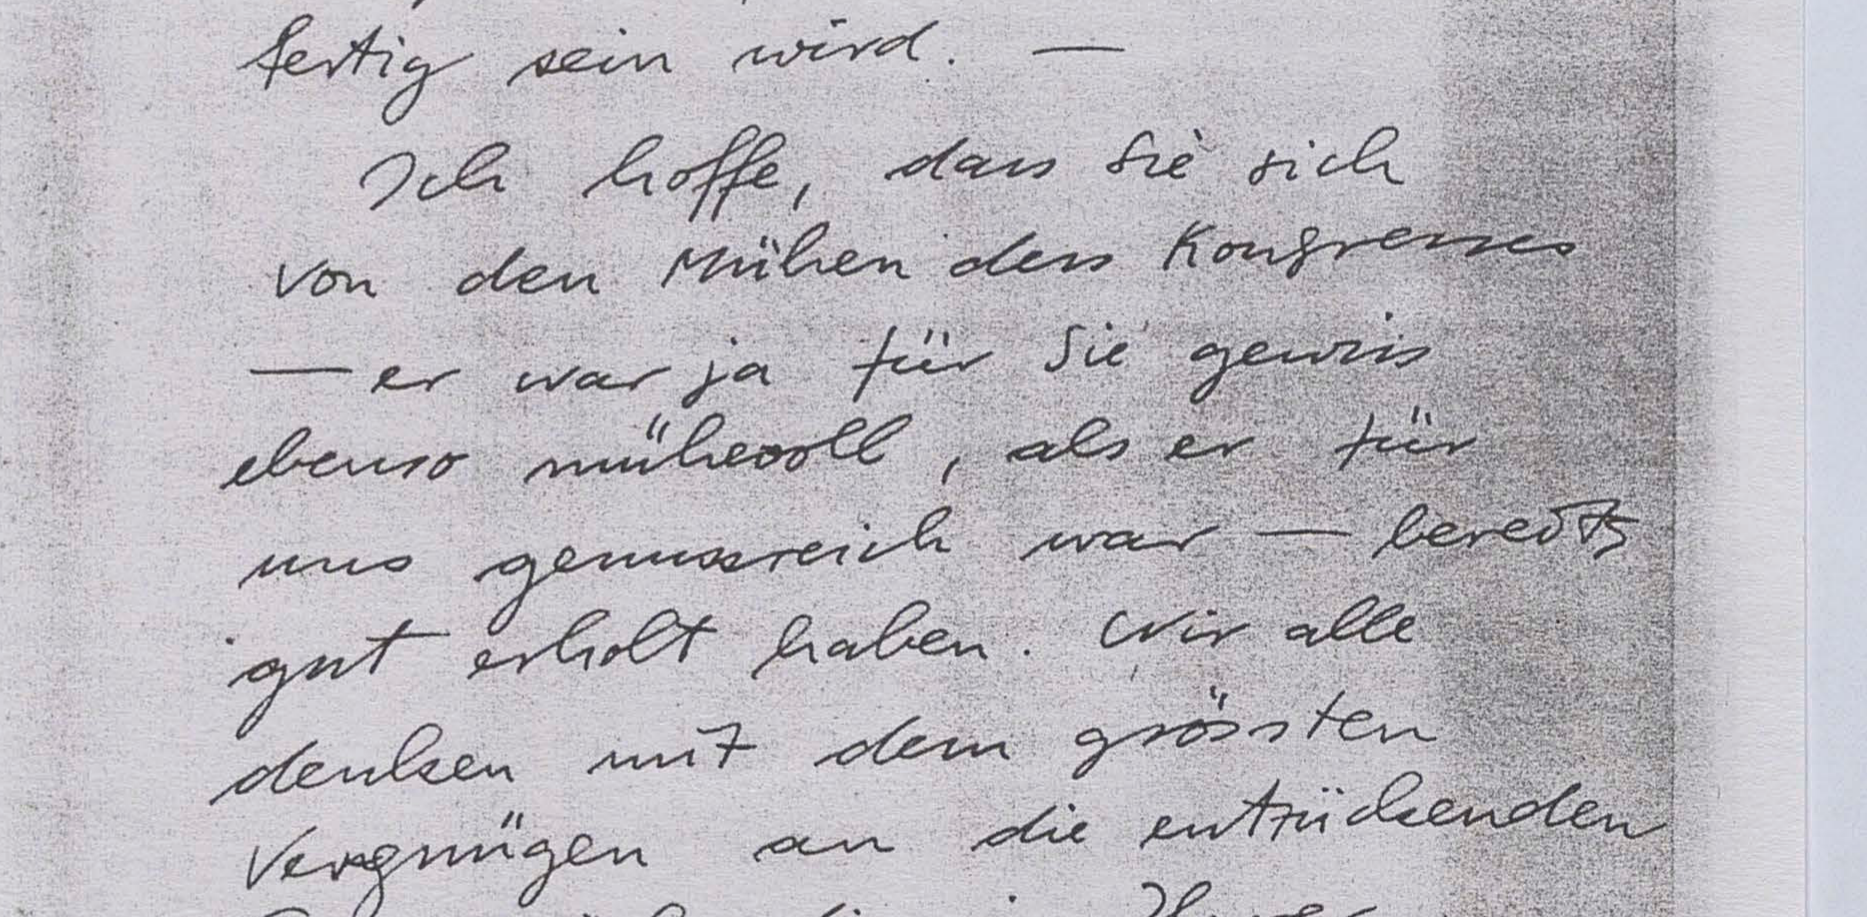 fertig sein wird. —
Ich hoffe, dass Sie sich
von den Mühen des Kongresses
— er war ja für Sie gewiss
ebenso mühevoll, als er für
uns genussreich war — bereits
gut erholt haben. Wir alle
denken mit dem grössten
Vergnügen an die entzückenden